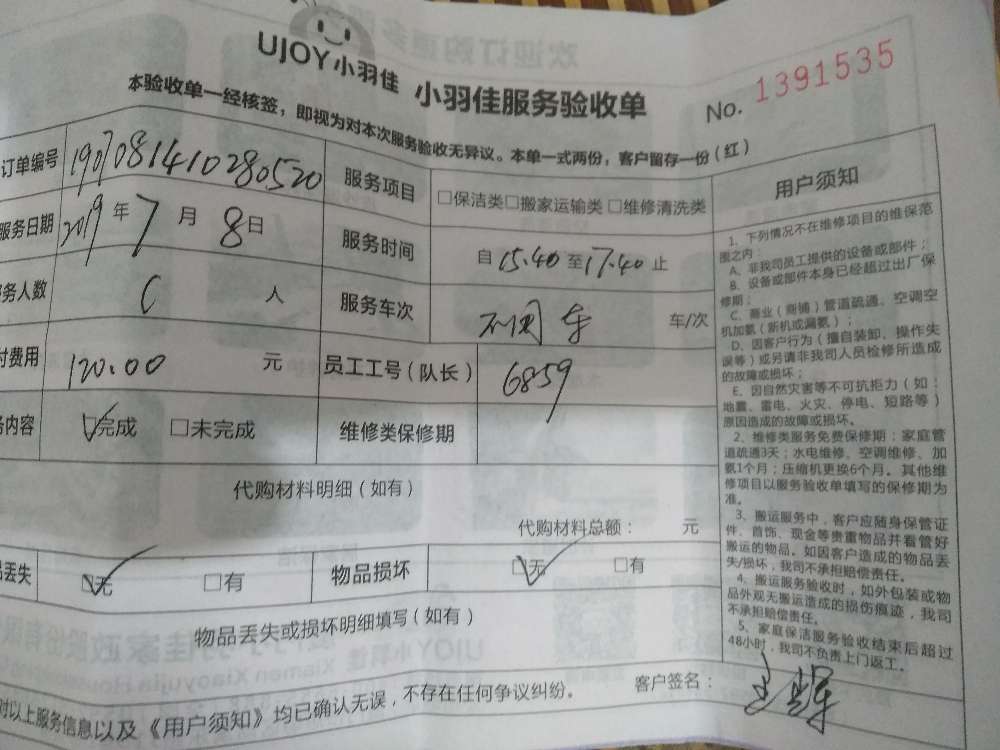 UJOY小羽佳 小羽佳服务验收单 No. 1391535
本验收单一经核签，即视为对本次服务验收无异议。本单一式两份，客户留存一份（红）
订单编号 1907081410280520 服务项目 □保洁类□搬家运输类□维修清洗类
服务日期 2019年7月8日 服务时间 自15.40至17.40止
务人数 人 服务车次 车/次
付费用 120.00 元 员工工号（队长） 6859
务内容 ☑完成 □未完成 维修类保修期
代购材料明细（如有）
代购材料总额： 元
品丢失 ☑无 □有 物品损坏 ☑无 □有
物品丢失或损坏明细填写（如有）
对以上服务信息以及《用户须知》均已确认无误，不存在任何争议纠纷。 客户签名：
用户须知
1、下列情况不在维修项目的维保范
围之内：
A、非我司员工提供的设备或部件；
B、设备或部件本身已经超过出厂保
修期；
C、商业（商铺）管道疏通、空调空
机加氨（新机或漏氨）；
D、因客户行为（擅自装卸、操作失
误等）或另请非我司人员检修所造成
的故障或损坏；
E、因自然灾害等不可抗拒力（如：
地震、雷电、火灾、停电、短路等）
原因造成的故障或损坏。
2、维修类服务免费保修期：家庭管
道疏通3天；水电维修、空调维修、加
氨1个月；压缩机更换6个月。其他维
修项目以服务验收单填写的保修期为
准。
3、搬运服务中，客户应随身保管证
件、首饰、现金等贵重物品并看管好
搬运的物品。如因客户造成的物品丢
失/损坏，我司不承担赔偿责任。
4、搬运服务验收时，如外包装或物
品外观无搬运造成的损伤痕迹，我司
不承担赔偿责任。
5、家庭保洁服务验收结束后超过
48小时，我司不负责上门返工。